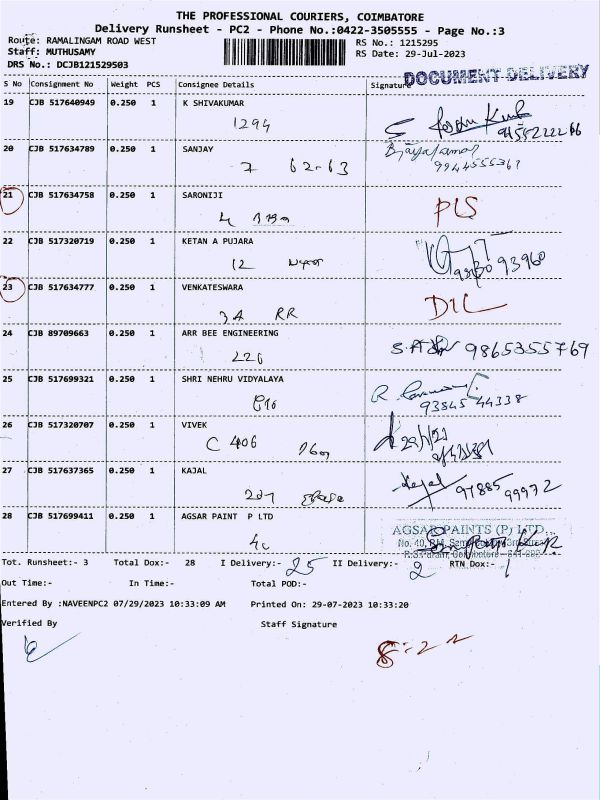 THE PROFESSIONAL COURIERS, COIMBATORE
Delivery Runsheet - PC2 - Phone No.:0422-3505555 - Page No.:3
Route: RAMALINGAM ROAD WEST RS No.: 1215295
Staff: MUTHUSAMY RS Date: 29-Jul-2023
DRS No.: DCJB121529503
DOCUMENT DELIVERY
S No Consignment No Weight PCS Consignee Details Signature
19 CJB 517640949 0.250 1 K SHIVAKUMAR
1294
20 CJB 517634789 0.250 1 SANJAY
7 62-63 9944555367
21 CJB 517634758 0.250 1 SARONIJI
4 PLS
22 CJB 517320719 0.250 1 KETAN A PUJARA
12
23 CJB 517634777 0.250 1 VENKATESWARA
3A RR DIL
24 CJB 89709663 0.250 1 ARR BEE ENGINEERING
226 9865355769
25 CJB 517699321 0.250 1 SHRI NEHRU VIDYALAYA
93845 44338
26 CJB 517320707 0.250 1 VIVEK
C 406
27 CJB 517637365 0.250 1 KAJAL
207 Kajal 97885 99972
28 CJB 517699411 0.250 1 AGSAR PAINT P LTD
4c AGSAR PAINTS (P) LTD.
Tot. Runsheet:- 3 Total Dox:- 28 I Delivery:- 25 II Delivery:- 2 RTN Dox:- 1
Out Time:- In Time:- Total POD:-
Entered By :NAVEENPC2 07/29/2023 10:33:09 AM Printed On: 29-07-2023 10:33:20
Verified By Staff Signature